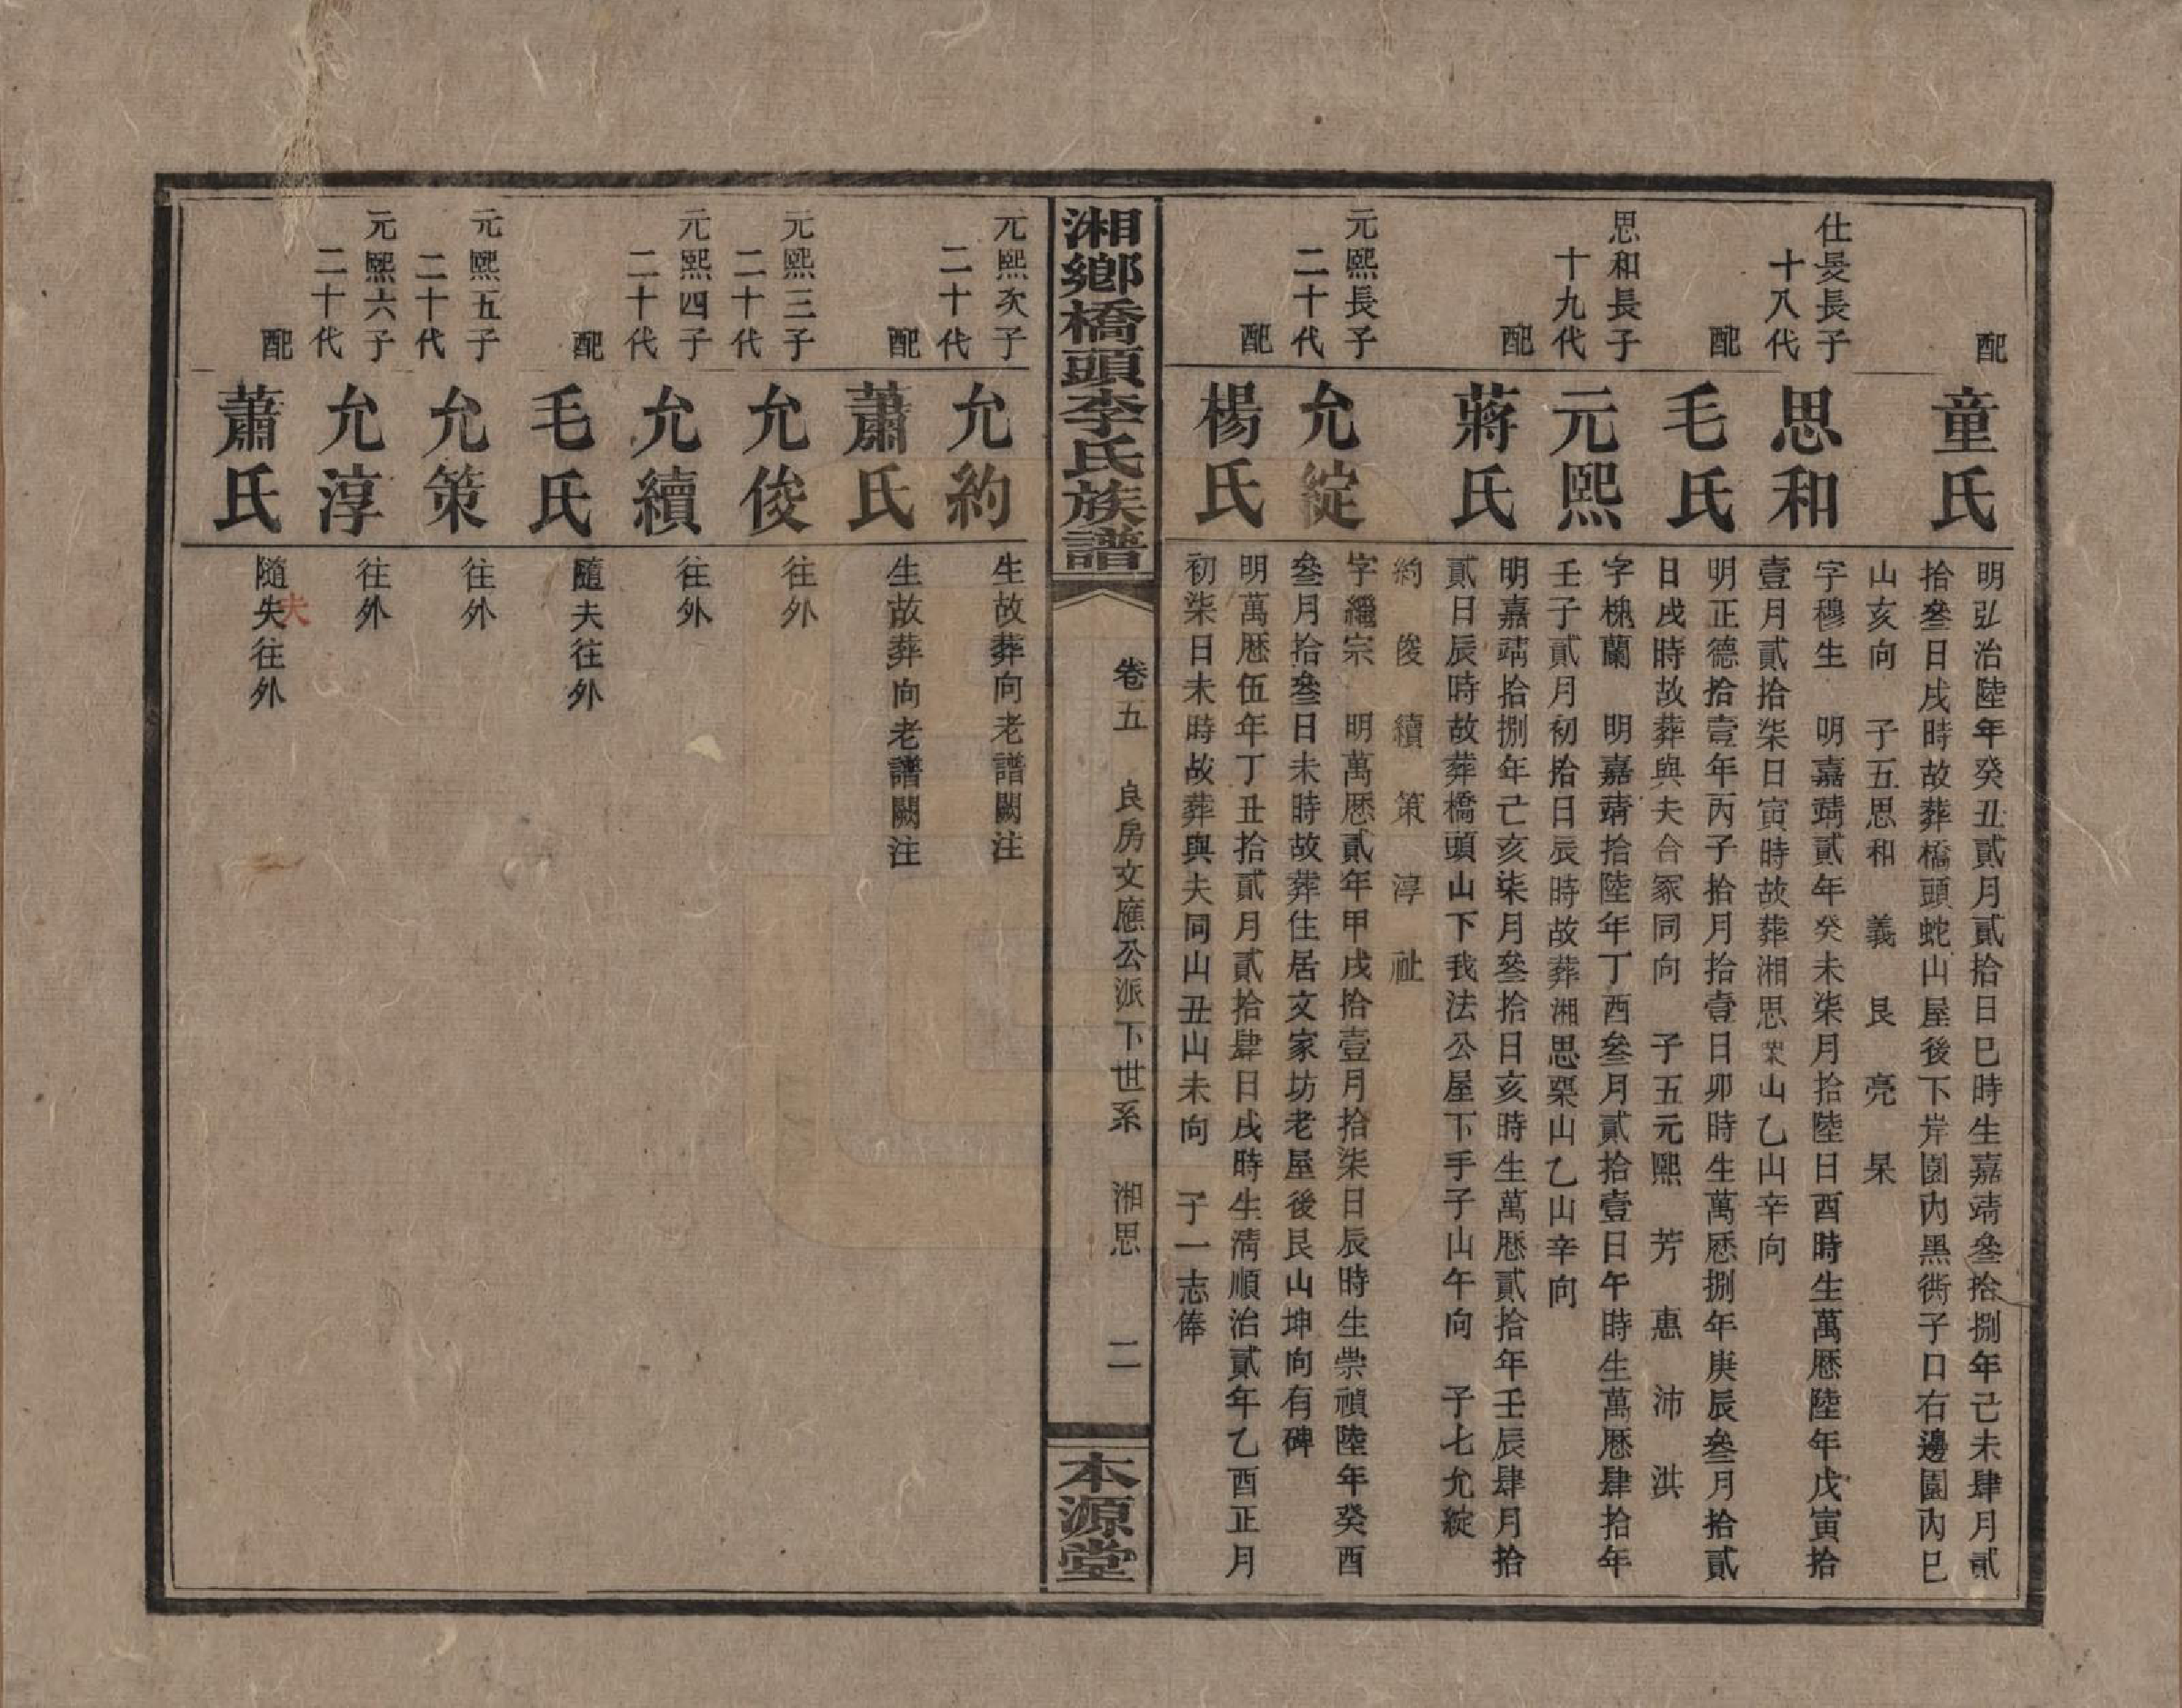 配
童氏
明弘治陸年癸丑貳月貳拾日巳時生嘉靖叁拾捌年己未肆月貳
拾叁日戌時故葬橋頭蛇山屋後下岸園內黑衖子口右邊園內巳
山亥向 子五思和 義 良 亮 杲
仕旻長子
十八代
思和
字穆生 明嘉靖貳年癸未柒月拾陸日酉時生萬歷陸年戊寅拾
壹月貳拾柒日寅時故葬湘思桨山乙山辛向
配
毛氏
明正德拾壹年丙子拾月拾壹日卯時生萬歷捌年庚辰叁月拾貳
日戌時故葬與夫合冢同向 子五元熙 芳 惠 沛 洪
思和長子
十九代
元熙
字槐蘭 明嘉靖拾陸年丁酉叁月貳拾壹日午時生萬歷肆拾年
壬子貳月初拾日辰時故葬湘思桨山乙山辛向
配
蔣氏
明嘉靖拾捌年己亥柒月叁拾日亥時生萬歷貳拾年壬辰肆月拾
貳日辰時故葬橋頭山下我法公屋下手子山午向 子七允綻
約 俊 續 策 淳 祉
元熙長子
二十代
允綻
字繼宗 明萬歷貳年甲戌拾壹月拾柒日辰時生崇禎陸年癸酉
叁月拾叁日未時故葬住居文家坊老屋後艮山坤向有碑
配
楊氏
明萬歷伍年丁丑拾貳月貳拾肆日戌時生清順治貳年乙酉正月
初柒日未時故葬與夫同山丑山未向 子一志俸
湘鄉橋頭李氏族譜
卷五 良房文應公派下世系 湘思 二
本源堂
元熙次子
二十代
允約
生故葬向老譜闕注
配
蕭氏
生故葬向老譜闕注
元熙三子
二十代
允俊
往外
元熙四子
二十代
允續
往外
配
毛氏
隨夫往外
元熙五子
二十代
允策
往外
元熙六子
二十代
允淳
往外
配
蕭氏
隨失往外
夫